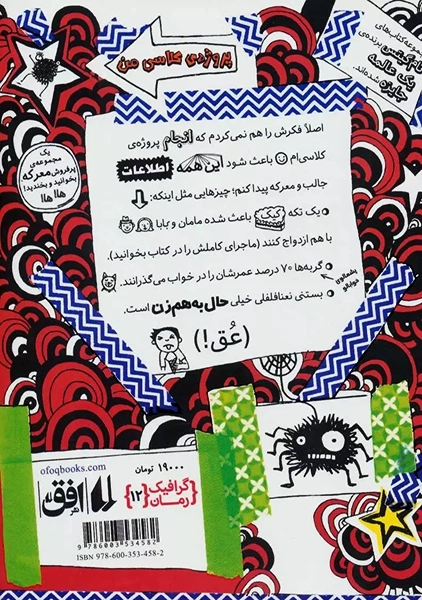 پروژه‌ی کلاسی من
مجموعه کتاب‌های
تام گیتس برنده‌ی
یک عالمه
جایزه شده‌اند.
یک
مجموعه‌ی
پرفروش معرکه
بخوانید و بخندید!
هاها!
اصلاً فکرش را هم نمی‌کردم که انجام پروژه‌ی
کلاسی‌ام باعث شود این همه اطلاعات
جالب و معرکه پیدا کنم؛ چیزهایی مثل اینکه:
یک تکه کیک باعث شده مامان و بابا
با هم ازدواج کنند (ماجرای کاملش را در کتاب بخوانید).
گربه‌ها ۷۰ درصد عمرشان را در خواب می‌گذرانند.
بستنی نعنافلفلی خیلی حال به هم زن است.
(عُق!)
پشمالوی
دوپاپالو
ofoqbooks.com
نشر افق
۱۹۰۰۰ تومان
گرافیک
رمان
{۱۲}
9 786003 534582
ISBN 978-600-353-458-2